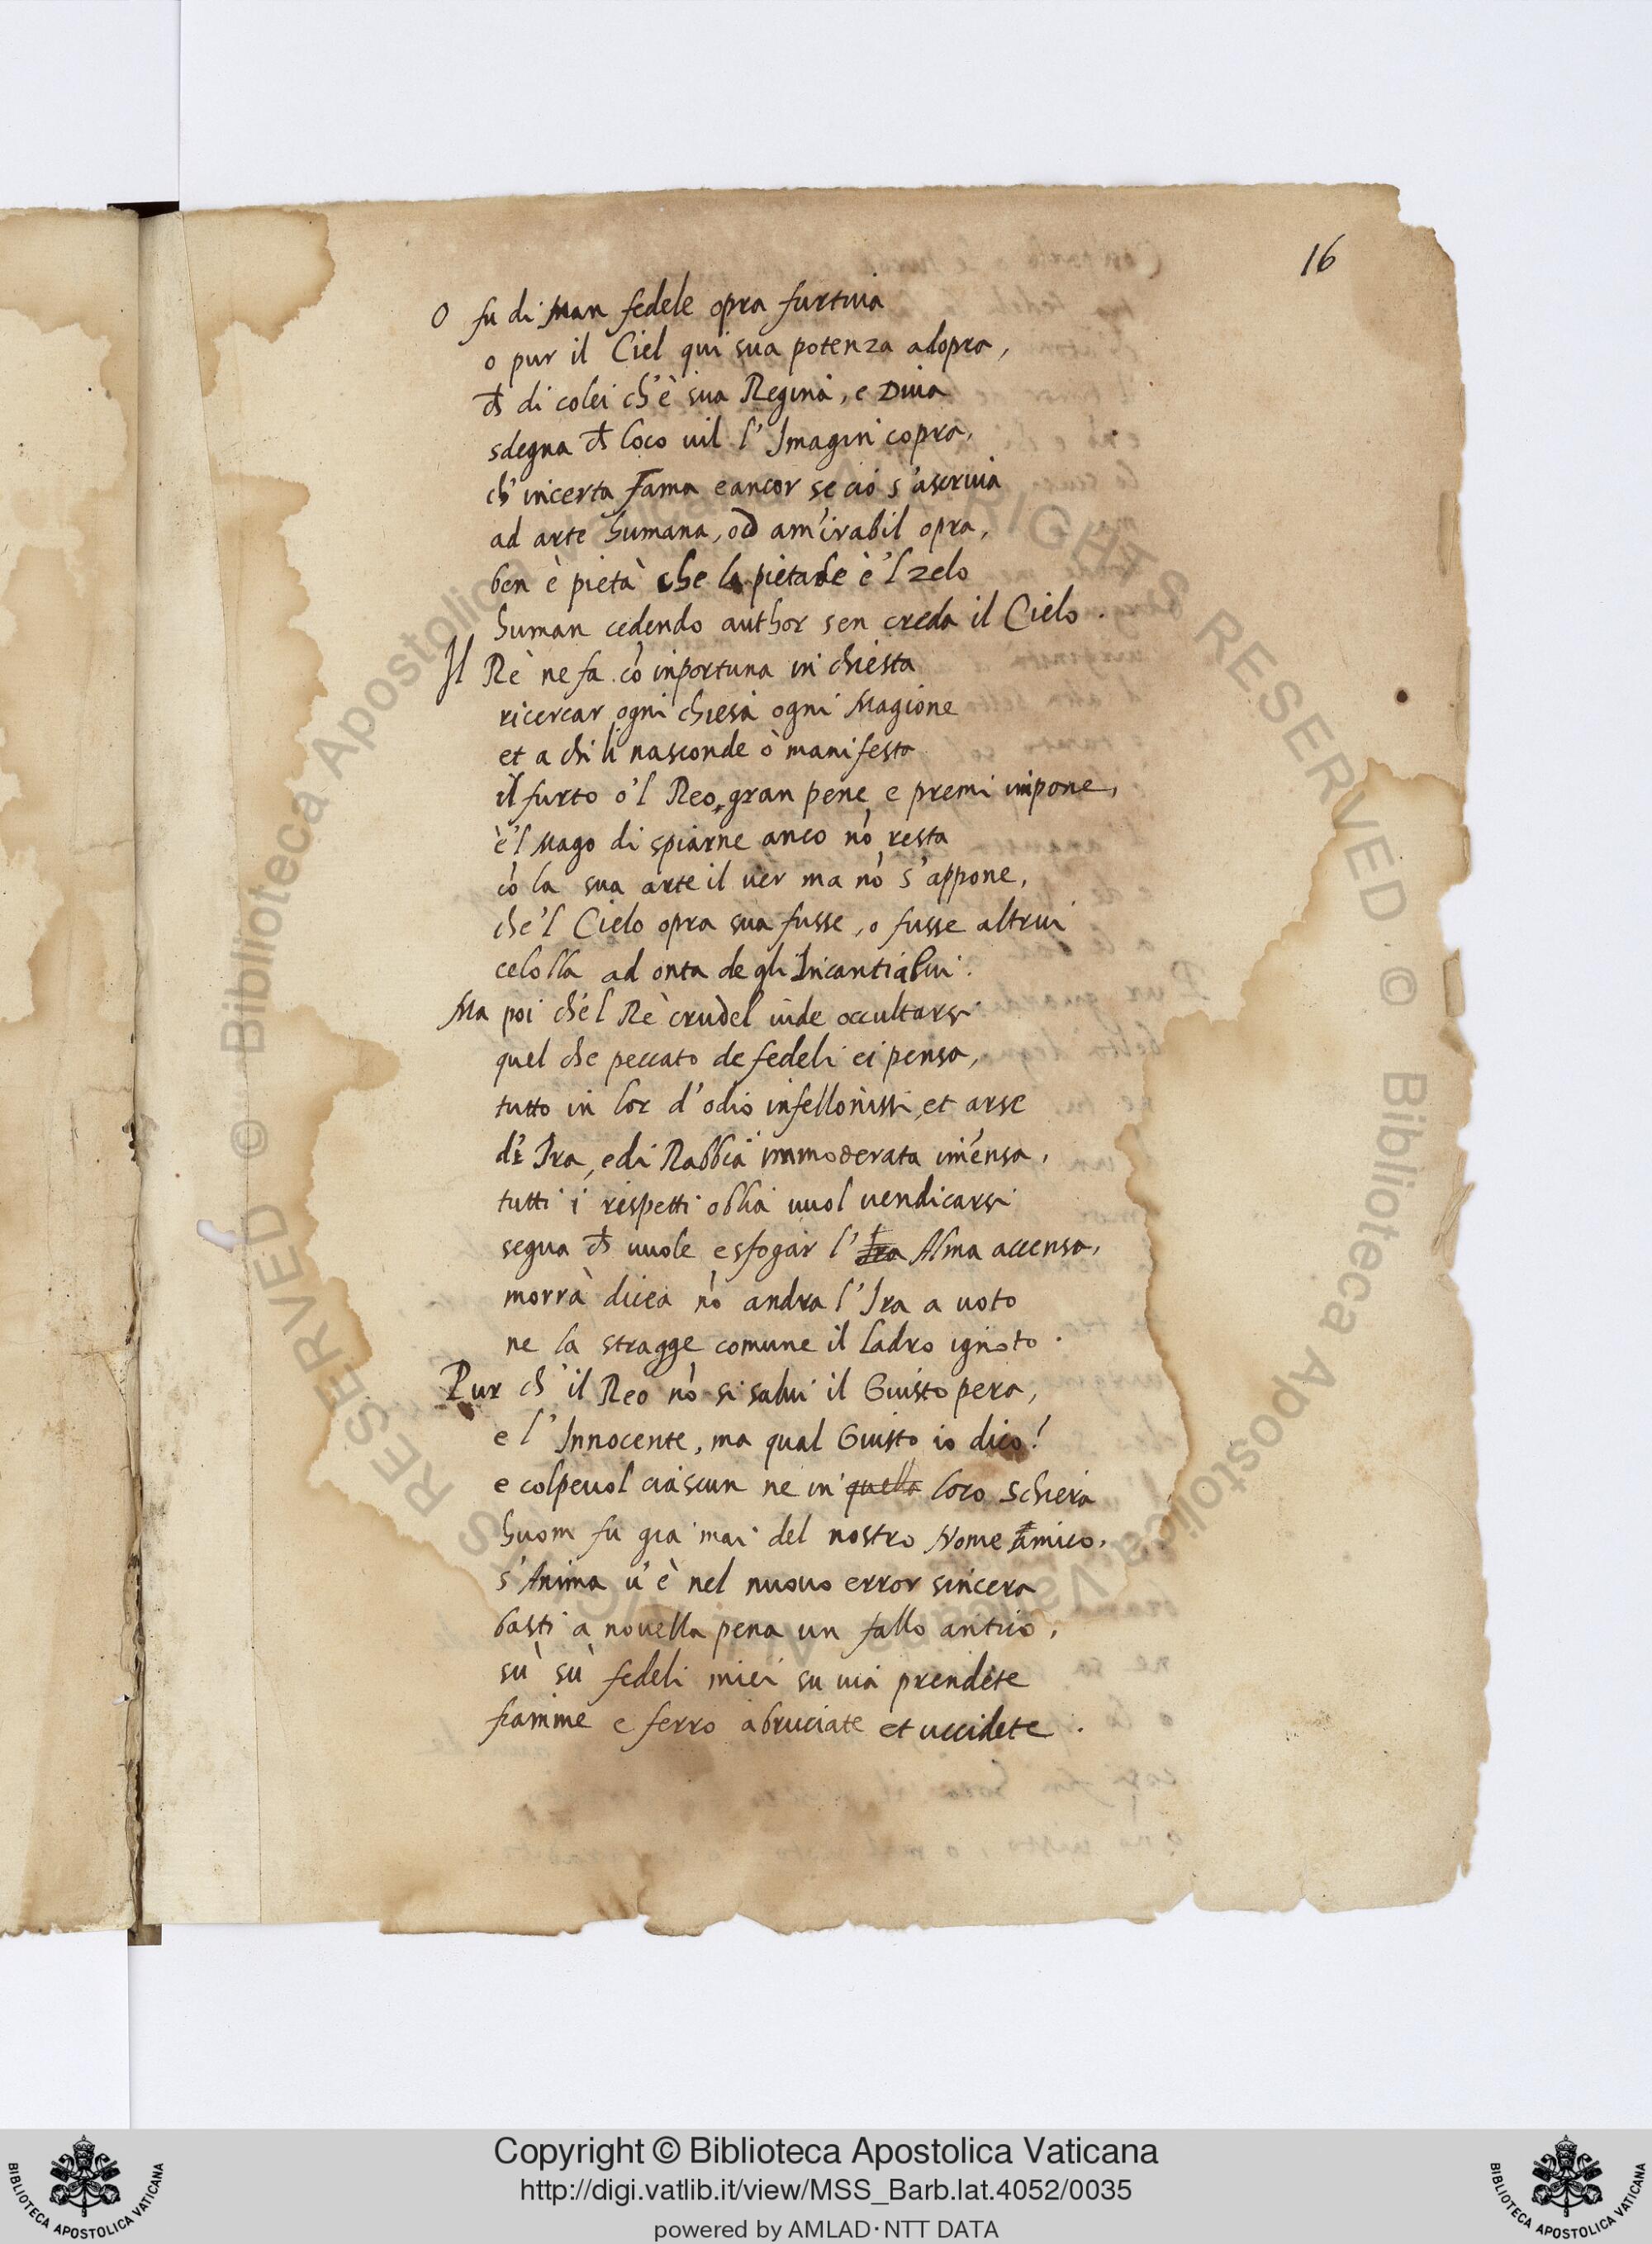 16
O fu di Man fedele opra furtiua
o pur il Ciel qui sua potenza adopra,
ch di colei ch'è sua Regina, e Diua
sdegna ch loco uil l'Imagin copra,
ch'incerta Fama e ancor se ciò s'ascriua
ad arte humana, od am'irabil opra,
ben è pietà che la pietade è 'l zelo
human cedendo author sen creda il Cielo.
Il Rè ne fa cō inportuna inchiesta
ricercar ogni chiesa ogni Magione
et a chi li nasconde ò manifesta
il furto o'l Reo, gran pene e premi impone,
è'l Mago di spiarne anco nō resta
cō la sua arte il uer ma nō s'appone,
che'l Cielo opra sua fusse, o fusse altrui
celolla ad onta de gli Incanti à lui.
Ma poi che'l Rè crudel uide occultarsi
quel che peccato de fedeli ei pensa,
tutto in lor d'odio infellonissi, et arse
di Ira, e di Rabbia immoderata im̄ensa,
tutti i rispetti oblia uuol uendicarsi
segua ch uuole e sfogar l' Ira Alma accensa,
morrà dicea nō andra l'Ira a uoto
ne la stragge comune il ladro ignoto.
Pur ch'il Reo nō si salui il Giusto pera,
e l'Innocente, ma qual Giusto io dico!
e colpeuol ciascun ne in quella loro schiera
huom fu gia mai del nostro Nome Amico,
s'Anima u'è nel nuouo error sincera
basti a nouella pena un fallo antico,
sù sù fedeli miei su uia prendete
fiamme e ferro abruciate et uccidete.
BIBLIOTECA APOSTOLICA VATICANA
Copyright © Biblioteca Apostolica Vaticana
http://digi.vatlib.it/view/MSS_Barb.lat.4052/0035
powered by AMLAD·NTT DATA
BIBLIOTECA APOSTOLICA VATICANA